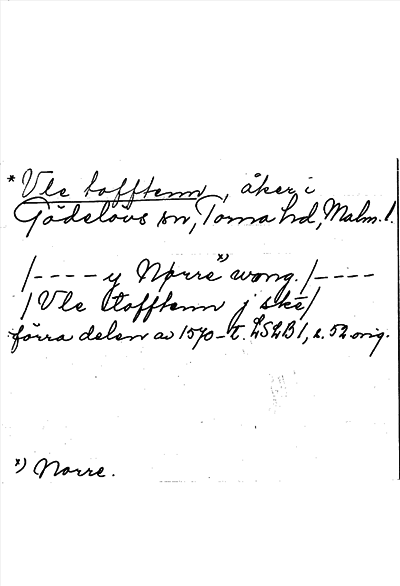 * Vle tofftenn, åker i
Gödelövs sn, Torna hd, Malm. l.
/---- y Nørre *) wong. /----
/ Vle tofftenn j skē /
förra delen av 1570-t. LSLB 1, s. 52 orig.
*) Norre.